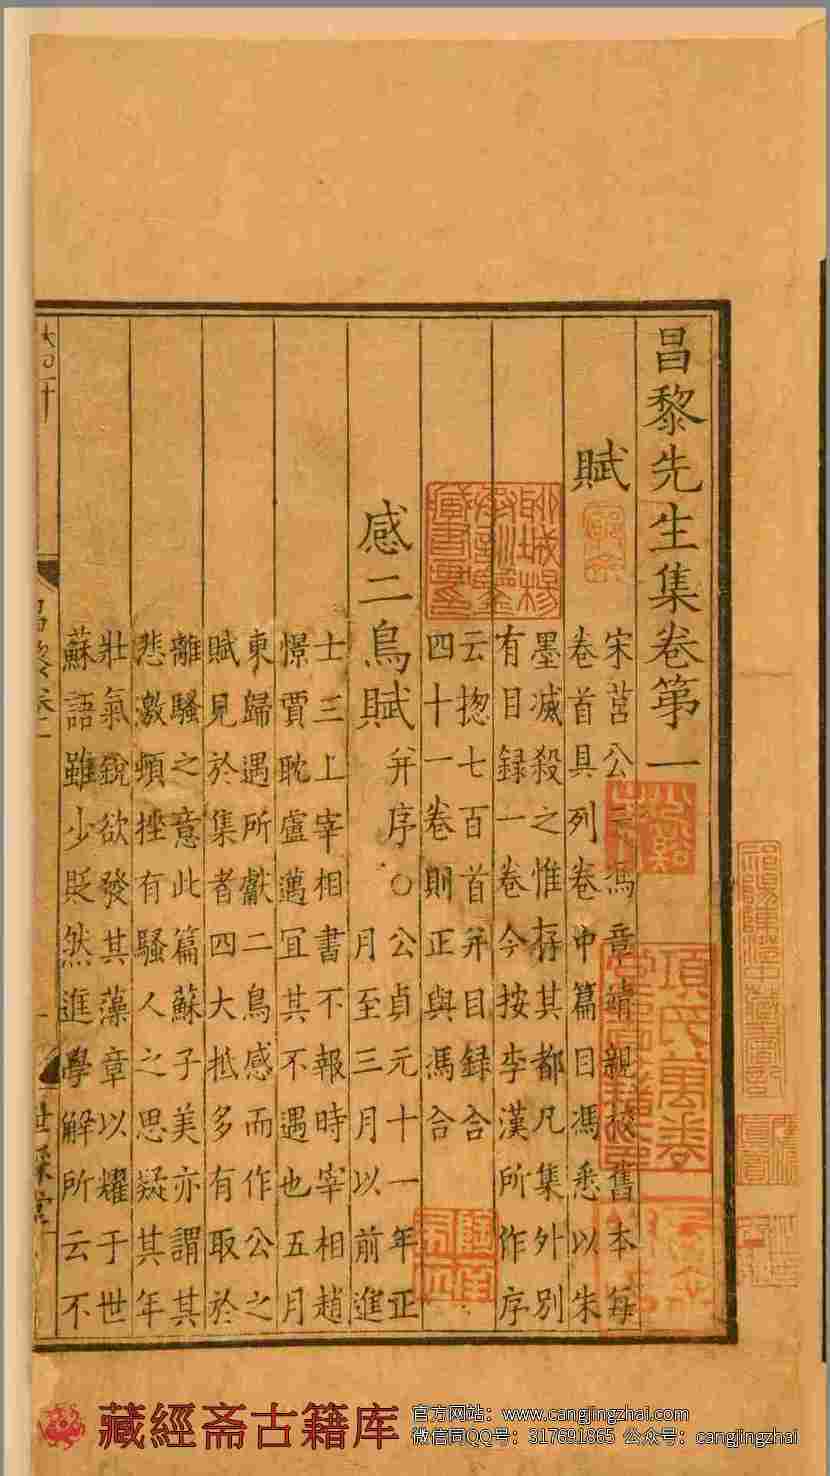 昌黎先生集卷第一
賦
宋莒公云馮章靖親校舊本每
卷首具列卷中篇目馮悉以朱
墨滅殺之惟存其都凡集外別
有目録一卷今按李漢所作序
云揔七百首并目録合
四十一卷則正與馮合
感二鳥賦
并序○公貞元十一年正
月至三月以前進
士三上宰相書不報時宰相趙
憬賈耽盧邁宜其不遇也五月
東歸遇所獻二鳥感而作公之
賦見於集者四大抵多有取於
離騷之意此篇蘇子美亦謂其
悲激頓挫有騷人之思疑其年
壯氣銳欲發其藻章以耀于世
蘇語雖少貶然進學解所云不
項氏萬卷
藏經斋古籍库
官方网站：www.cangjingzhai.com
微信同QQ号：317691865 公众号：cangjingzhai